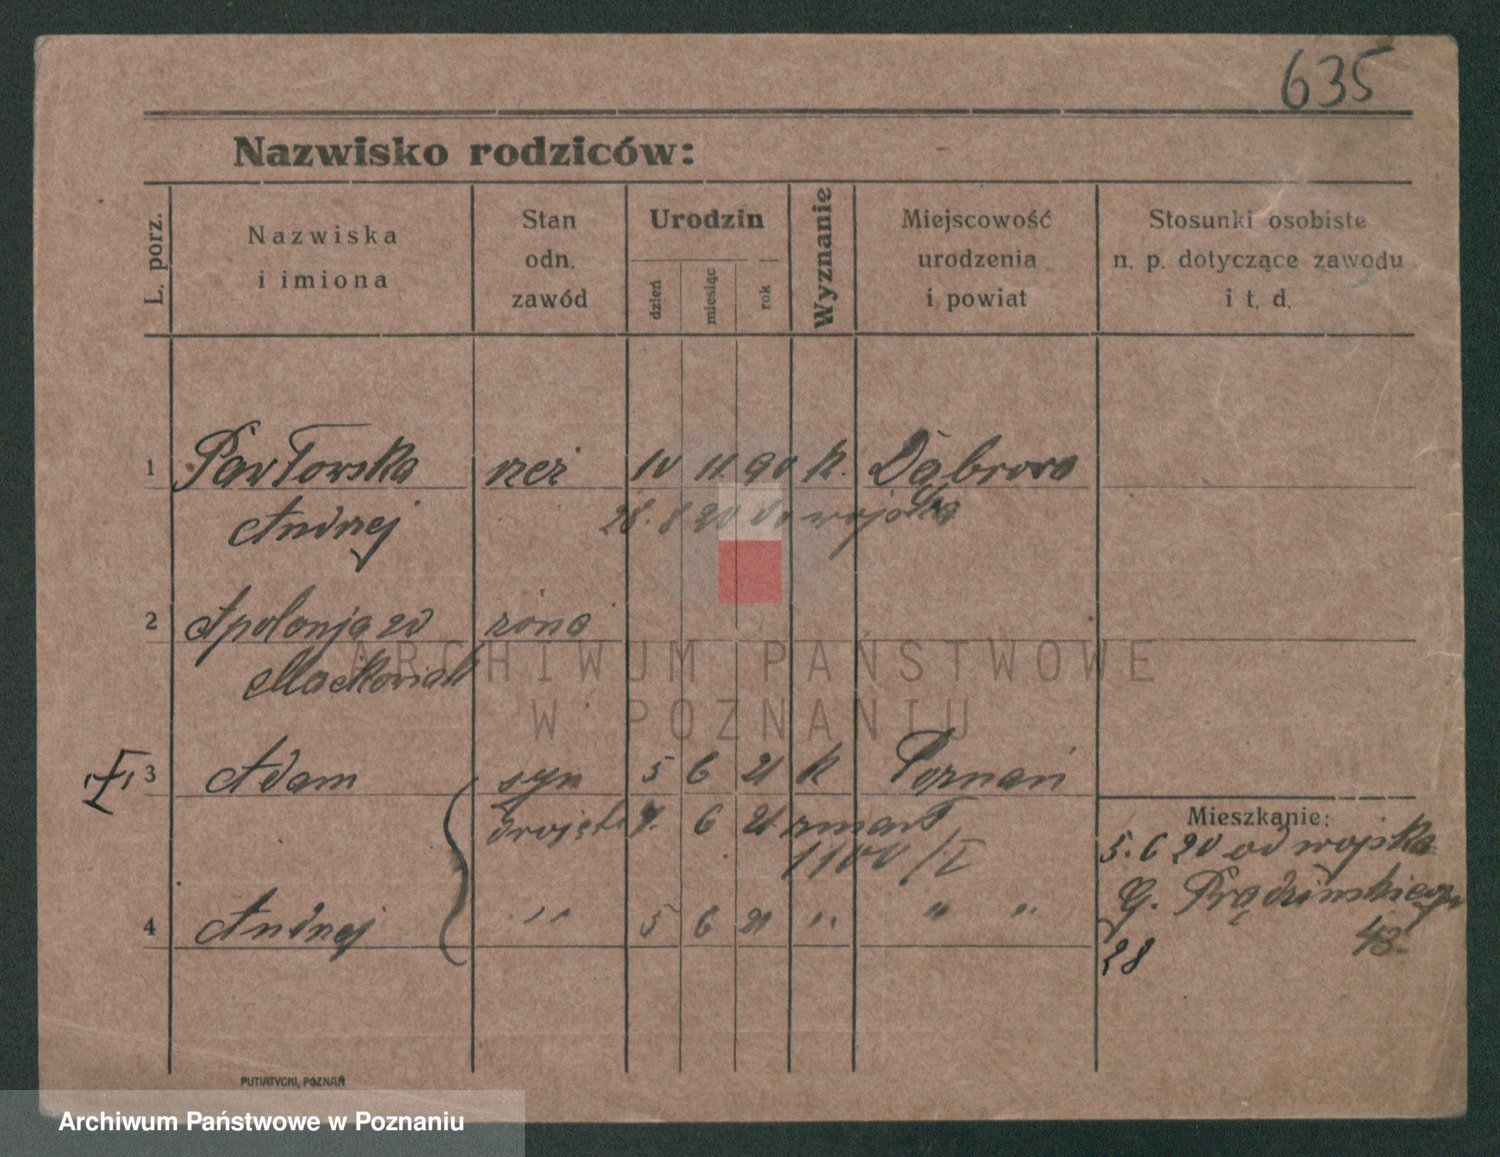 635
Nazwisko rodziców:
L. porz.
Nazwiska
i imiona
Stan
odn.
zawód
Urodzin
dzień
miesiąc
rok
Wyznanie
Miejscowość
urodzenia
i powiat
Stosunki osobiste
n. p. dotyczące zawodu
i t. d.
1 Pawłowska 10 11 90 k. Dąbrowa
Andrzej 28. 8 20 do wojska
2 Apolonja zd żona
Maćkowiak
3 Adam syn 5 6 21 k Poznań
6 21 zmarł
1100/I
4 Andrzej " 5 6 21 " " "
Mieszkanie:
5. 6 20 od wojska
G. Prądzińskiego
28 43.
PUTIATYCKI, POZNAŃ
ARCHIWUM PAŃSTWOWE
W POZNANIU
Archiwum Państwowe w Poznaniu